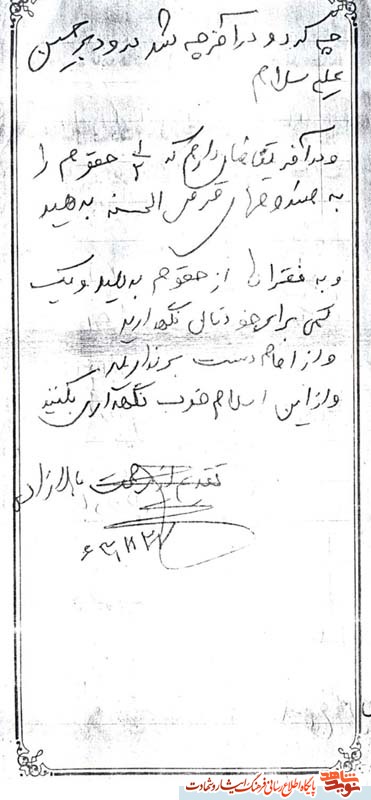 چه کرد و در آخر چه شد درود بر حسین
علیه سلام
و در آخر تقاضای دارم که ۱/۲ حقوقم را
به صندوقهای قرض الحسنه بدهید
و به فقرا از حقوقم بدهید و یک
کمی برای خودتان نگهدارید
و از امام دست برندارید
و از این اسلام خوب نگهداری بکنید
تقدیم از
نوید شاهد
پایگاه اطلاع رسانی فرهنگ ایثار و شهادت